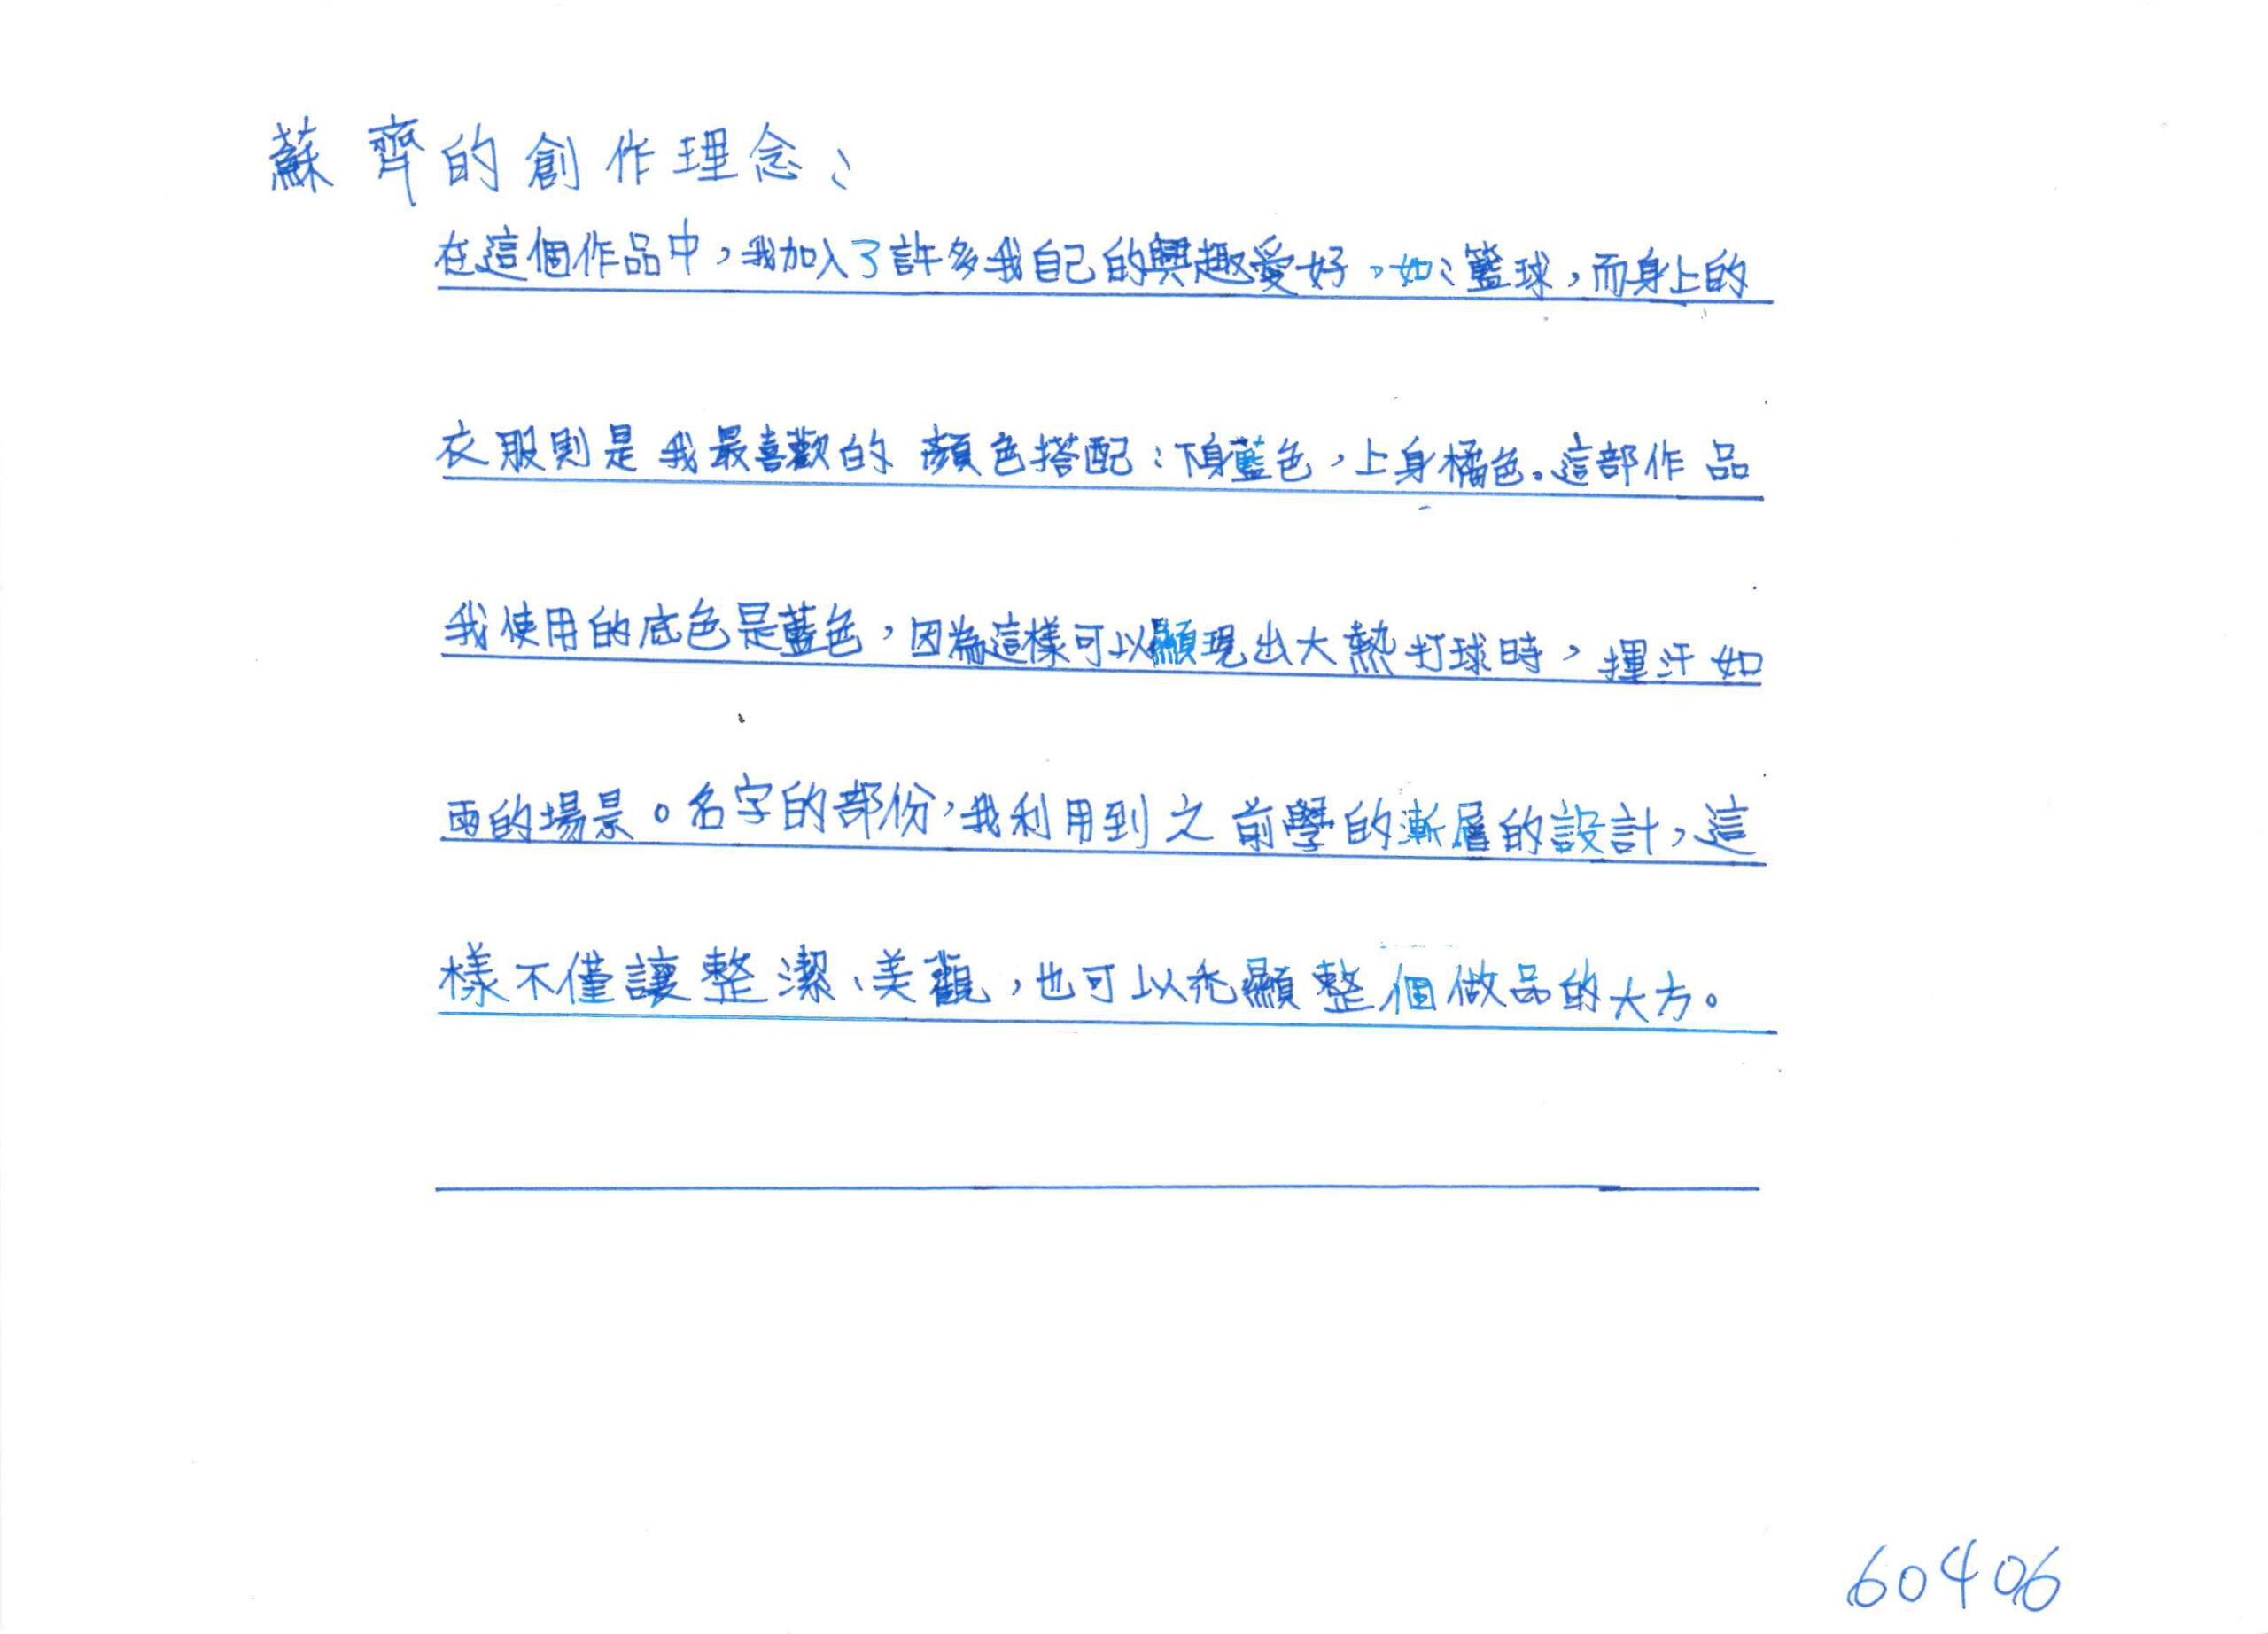 蘇齊的創作理念：
在這個作品中，我加入了許多我自己的興趣愛好，如：籃球，而身上的
衣服則是我最喜歡的顏色搭配：下身藍色，上身橘色。這部作品
我使用的底色是藍色，因為這樣可以顯現出大熱打球時，揮汗如
雨的場景。名字的部份，我利用到之前學的漸層的設計，這
樣不僅讓整潔、美觀，也可以禿顯整個做品的大方。
60406